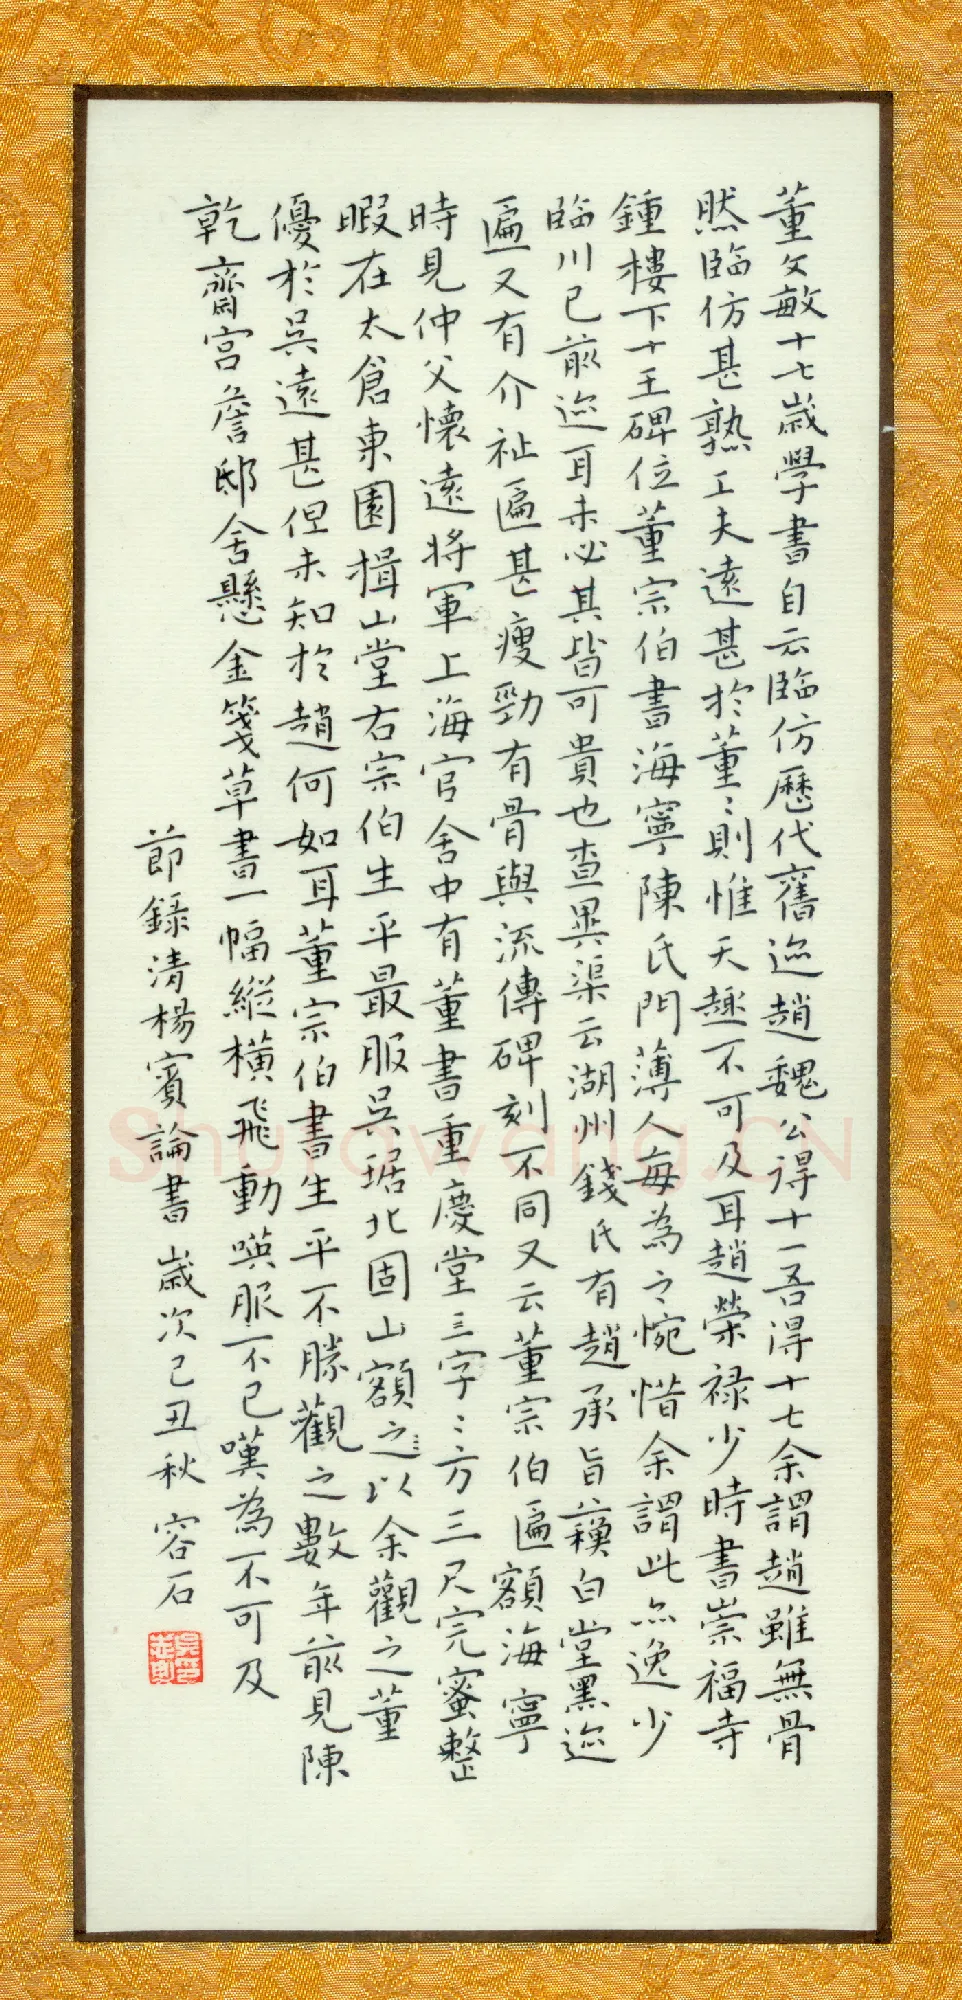 董文敏十七歲學書自云臨仿歷代舊迹趙魏公得十一吾得十七余謂趙雖無骨
然臨仿甚熟工夫遠甚於董〻則惟天趣不可及耳趙榮禄少時書崇福寺
鍾樓下十王碑位董宗伯書海寧陳氏門薄人每為之惋惜余謂此亦逸少
臨川已前迹耳未必其皆可貴也查異渠云湖州錢氏有趙承旨蘓白堂黑迹
匾又有介祉匾甚瘦勁有骨與流傳碑刻不同又云董宗伯匾額海寧
時見仲父懷遠將軍上海官舍中有董書重慶堂三字〻方三尺完蜜整
暇在太倉東園揖山堂右宗伯生平最服吳琚北固山額之以余觀之董
優於吳遠甚但未知於趙何如耳董宗伯書生平不勝觀之數年前見陳
乾齋宮詹邸舍懸金箋草書一幅縱橫飛動嘆服不已嘆為不可及
節錄清楊賓論書歲次己丑秋容石
Shufawang.CN